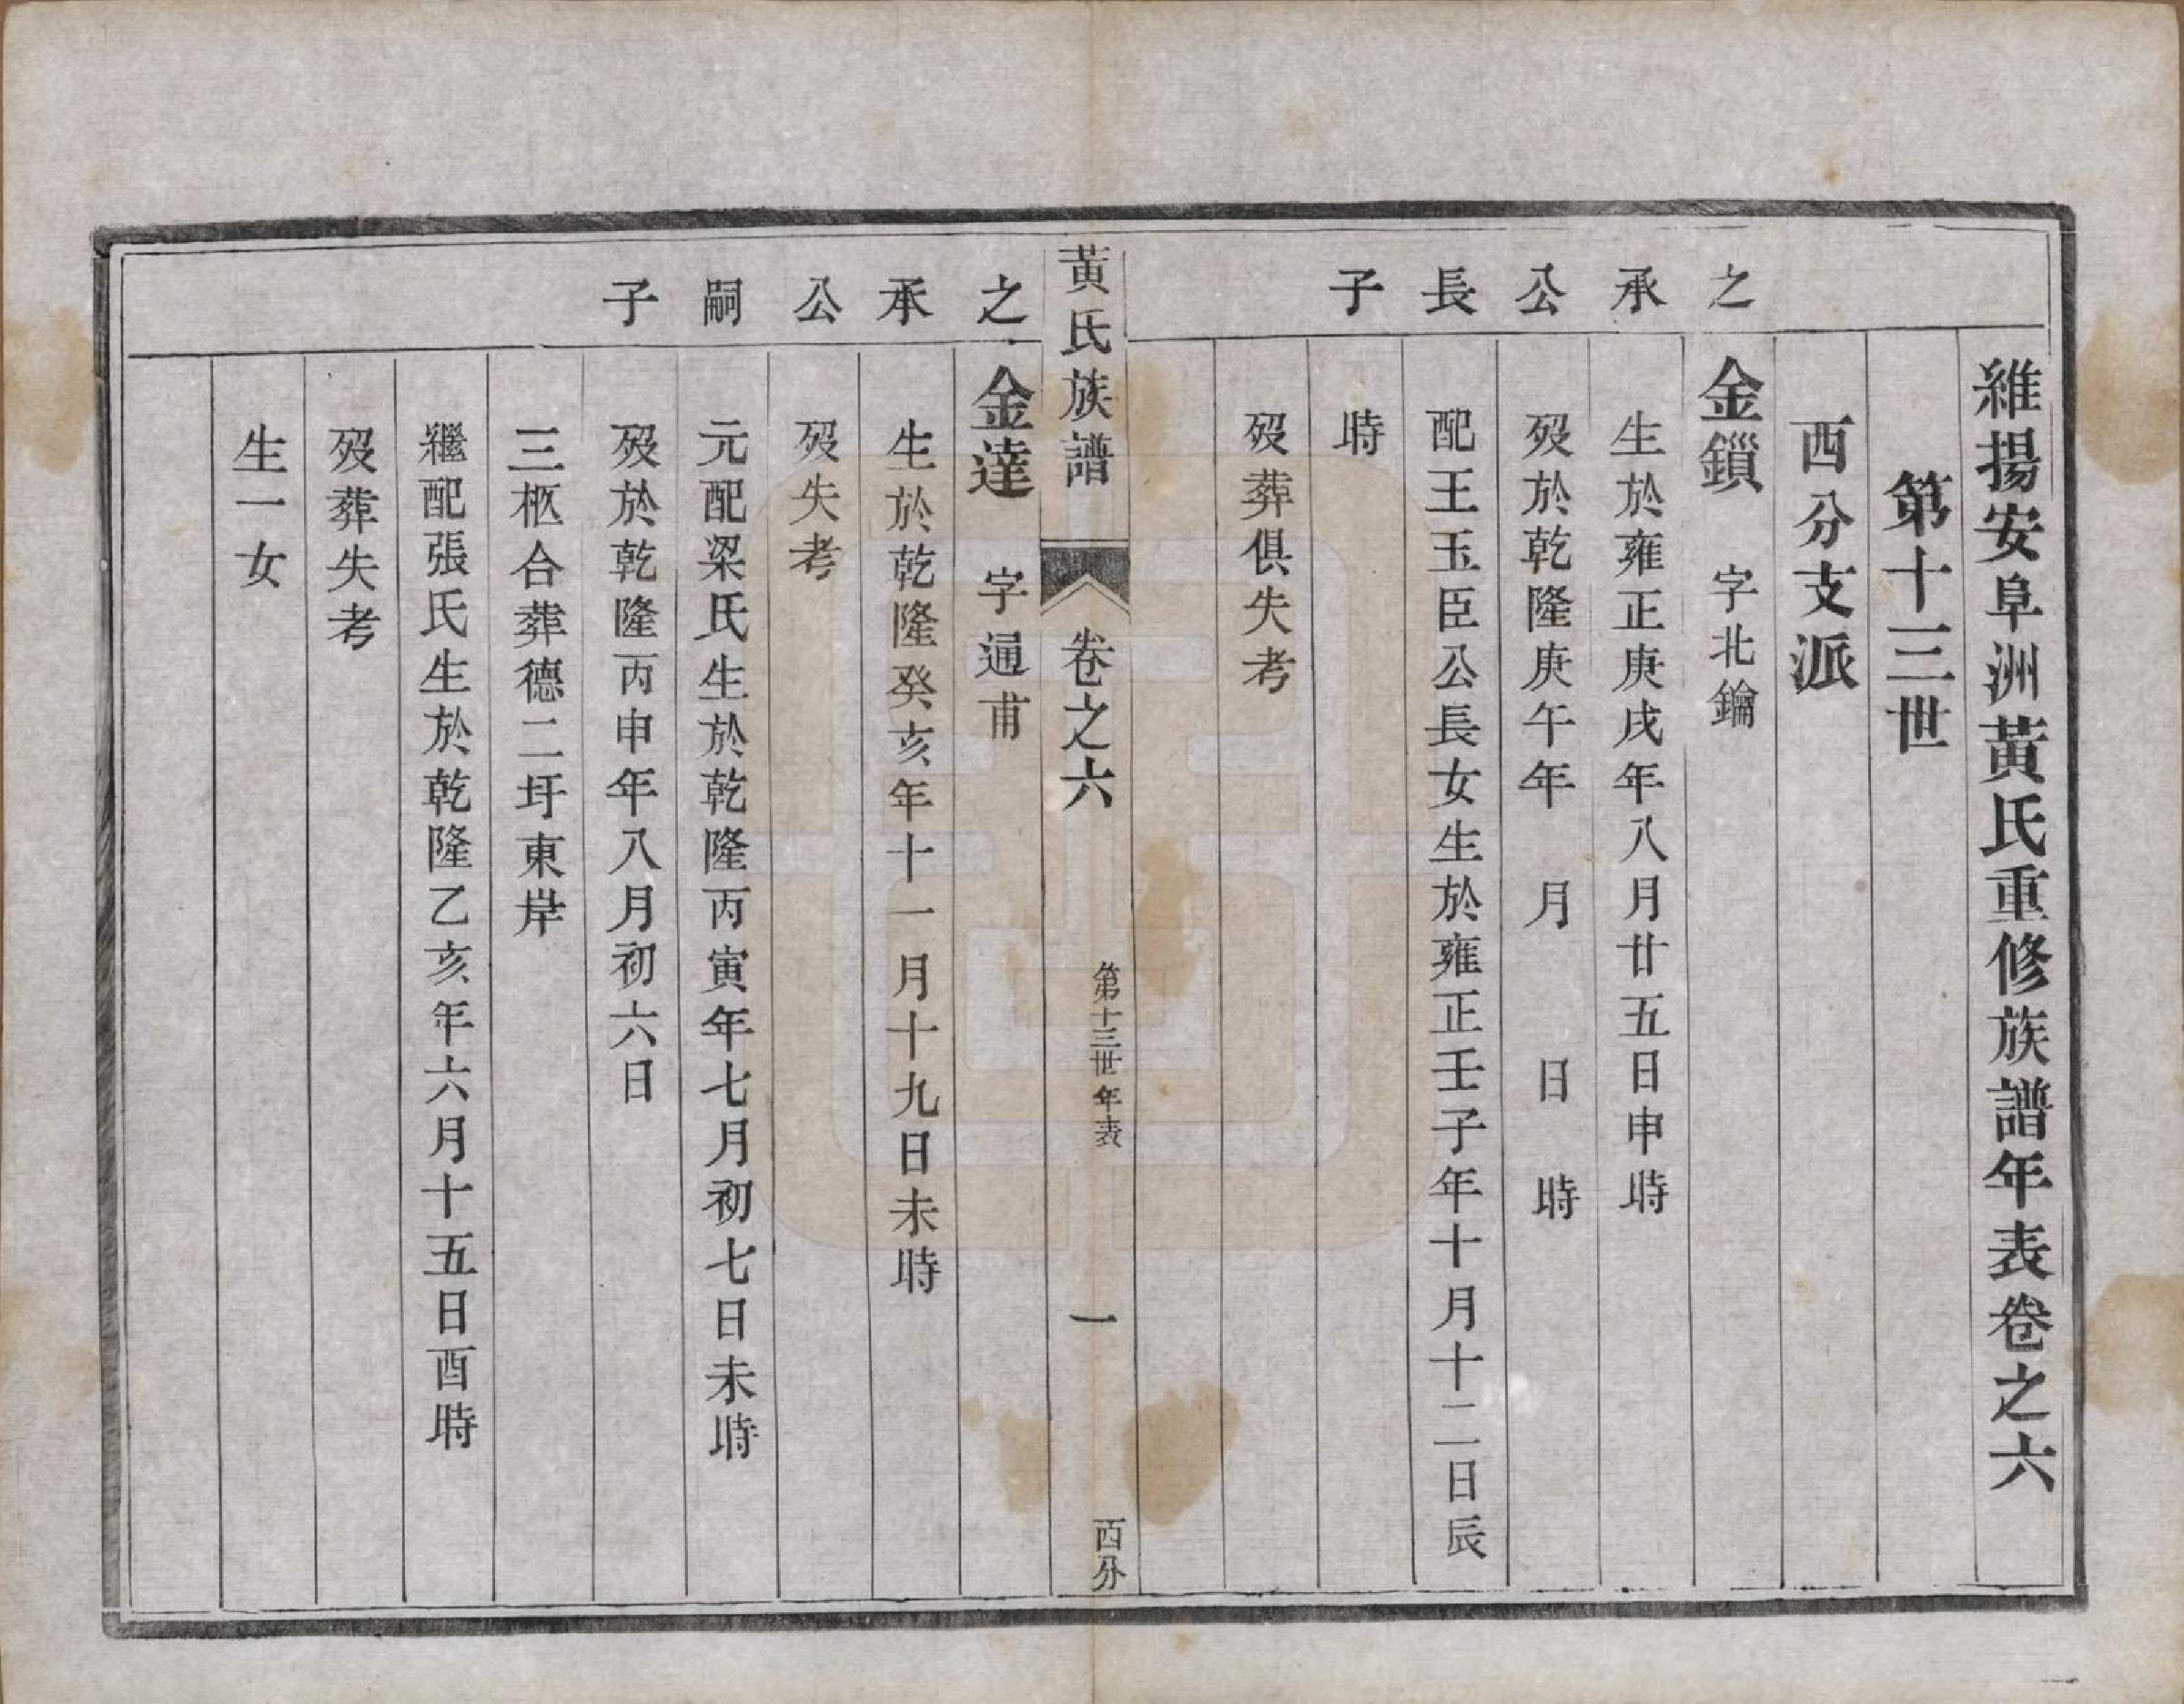 維揚安阜洲黃氏重修族譜年表卷之六
第十三世
西分支派
之承公長子
金鎻 字北鑰
生於雍正庚戌年八月廿五日申時
歿於乾隆庚午年 月 日 時
配王玉臣公長女生於雍正壬子年十月十二日辰
時
歿葬俱失考
黃氏族譜 卷之六 第十三世年表 一 西分
之承公嗣子
金達 字通甫
生於乾隆癸亥年十一月十九日未時
歿失考
元配梁氏生於乾隆丙寅年七月初七日未時
歿於乾隆丙申年八月初六日
三柩合葬德二圩東岸
繼配張氏生於乾隆乙亥年六月十五日酉時
歿葬失考
生一女